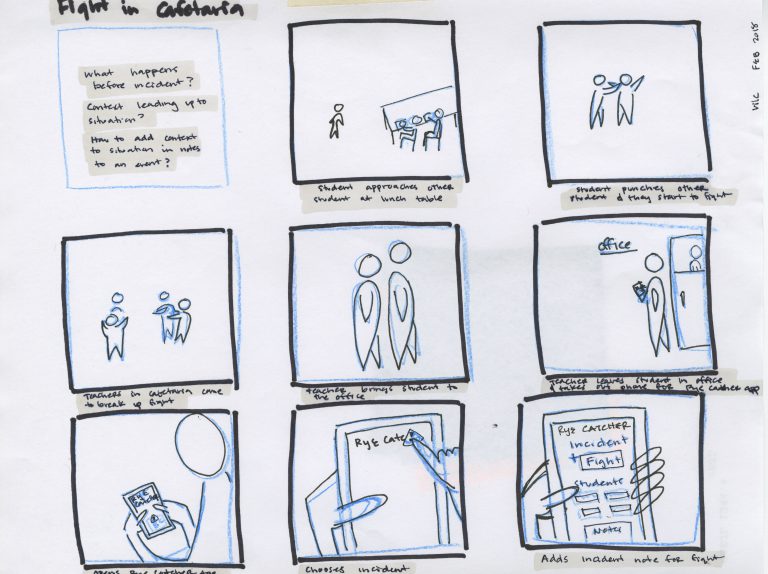 Fight in Cafetaria
What happens
before incident?
Context leading up to
situation?
How to add context
to situation in notes
to an event?
Student approaches other
student at lunch table
Student punches other
student & they start to fight
Feb 2018
Teachers in cafetaria come
to break up fight
Teacher brings student to
the office
office
Teacher leaves student in office
& takes out phone for Rye Catcher app
RYE
CATCHER
Opens Rye Catcher app
RYE Catc
Chooses incident
RYE CATCHER
Incident
+ Fight
Students
Notes
Adds incident note for fight